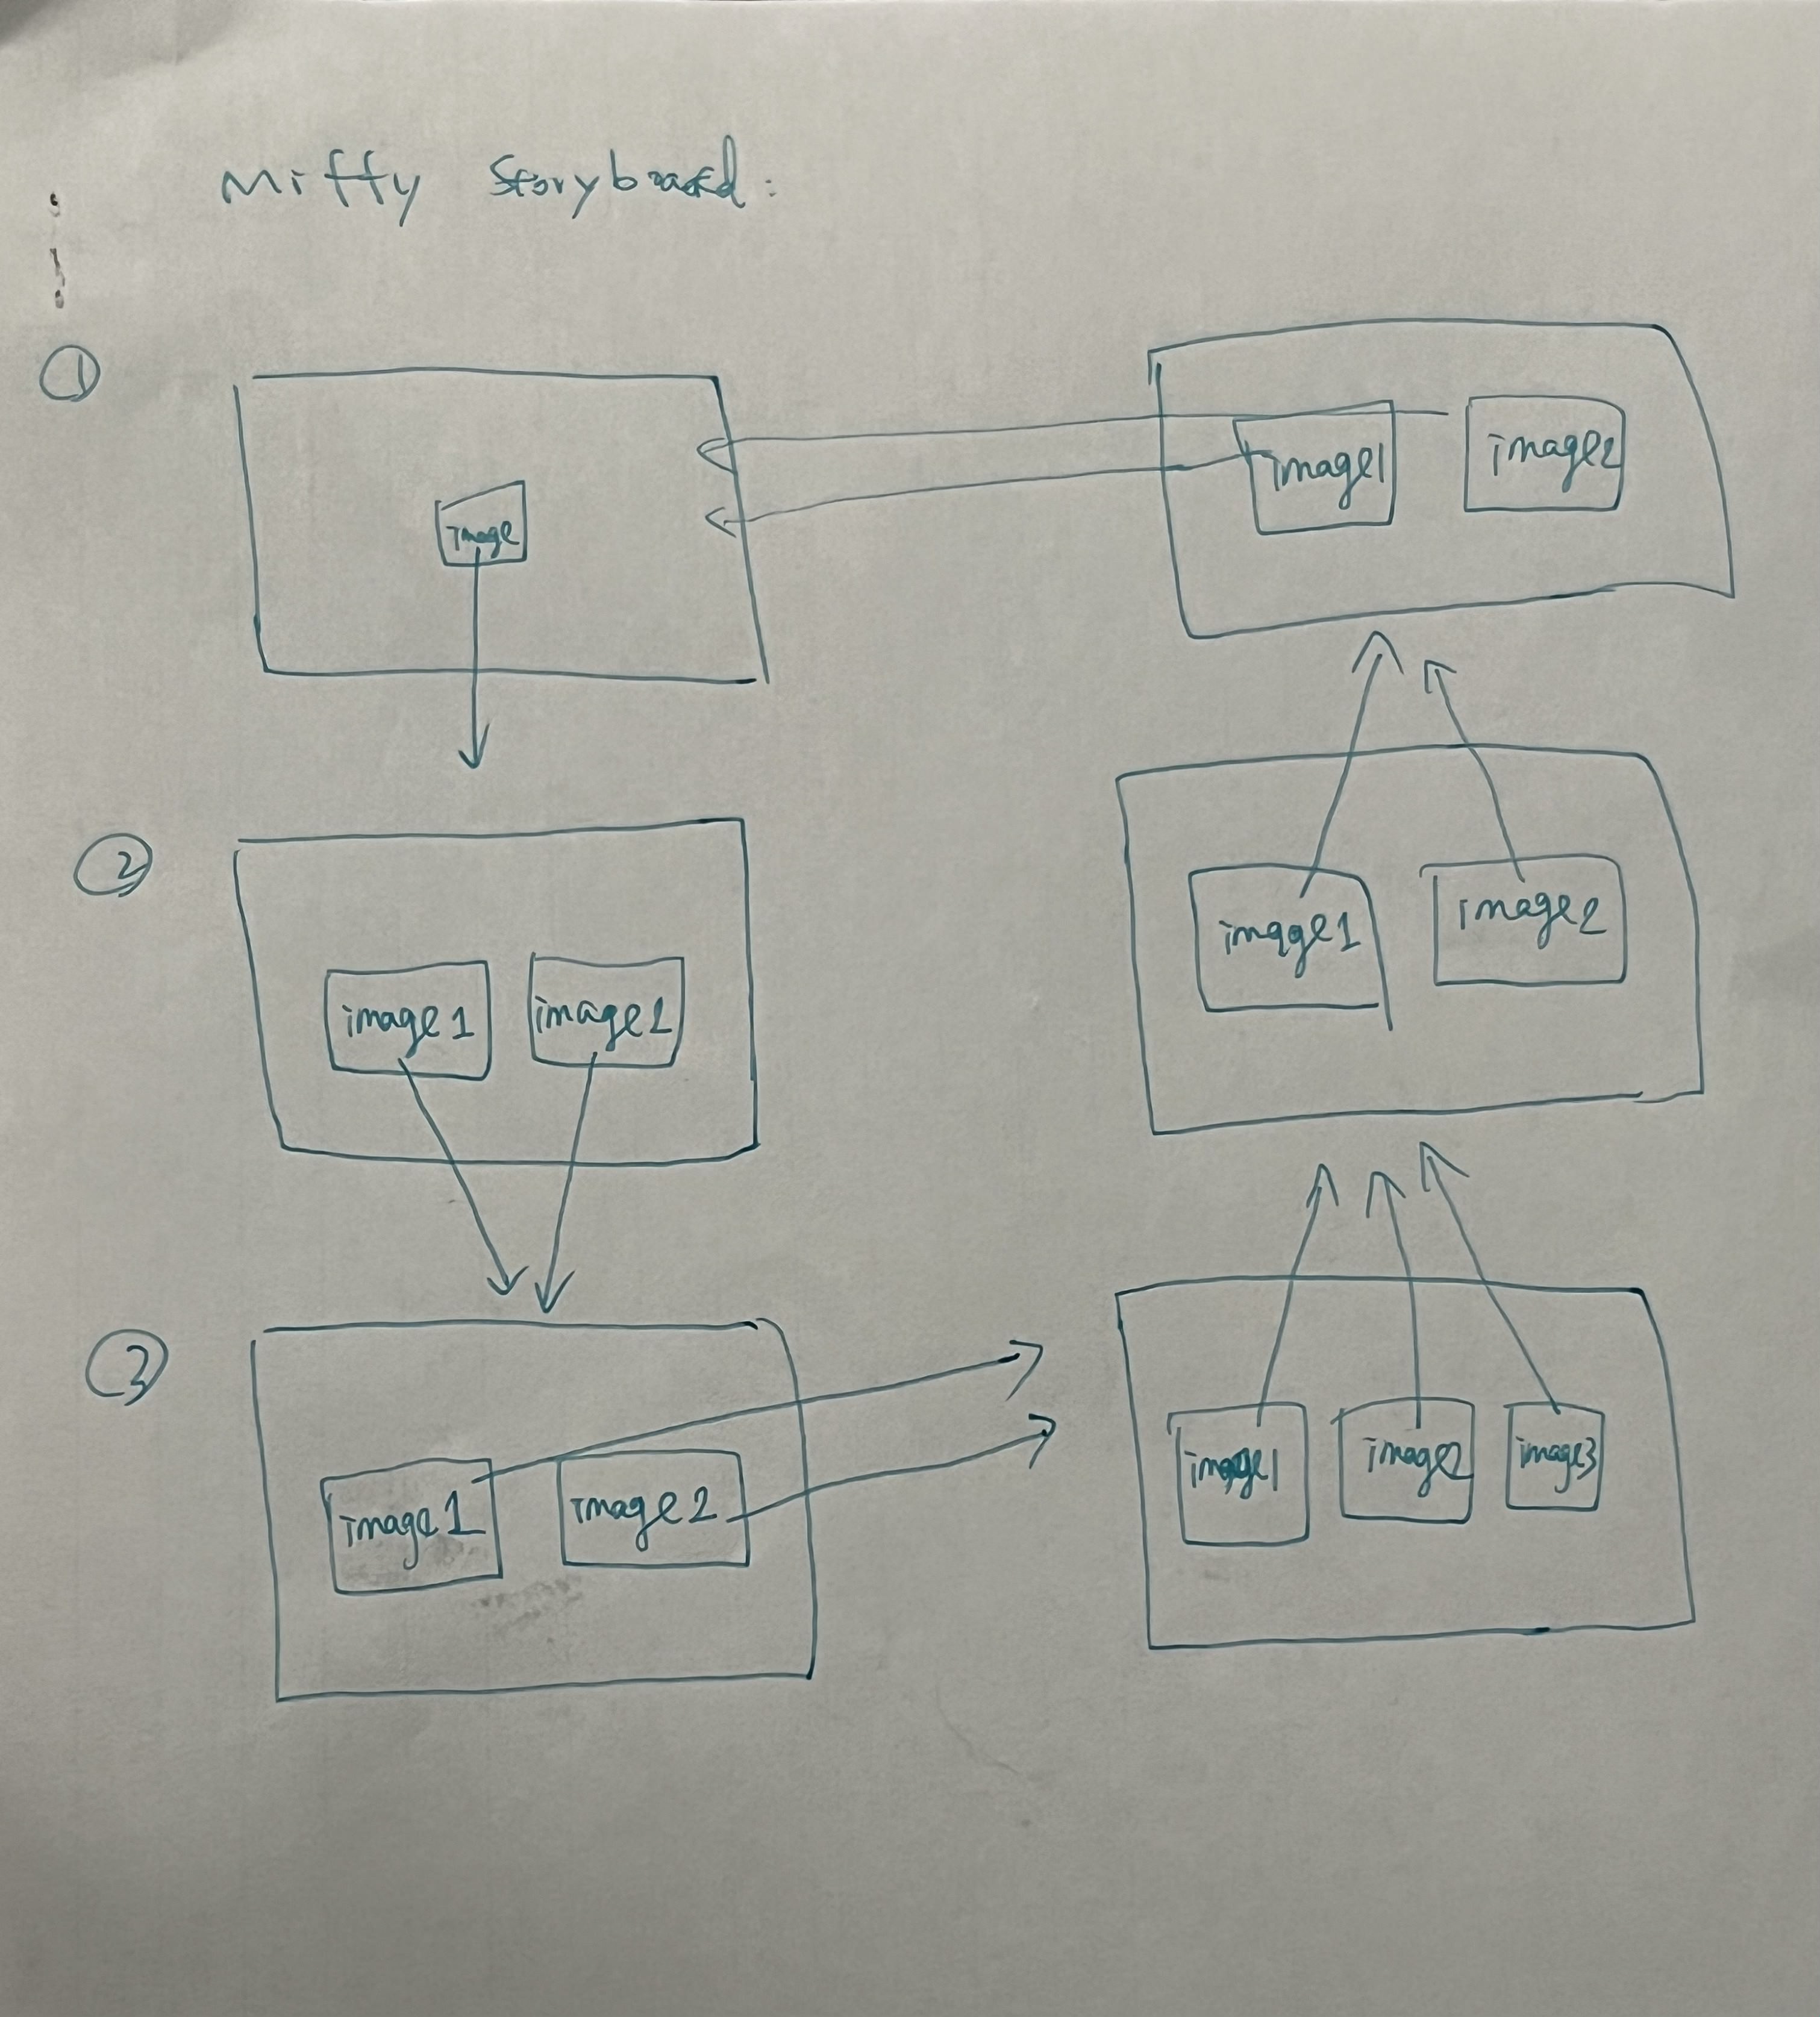 Miffy Storyboard:
①
image
image1 image2
②
image1 image2
image1 image2
③
image1 image2
image1 image2 image3